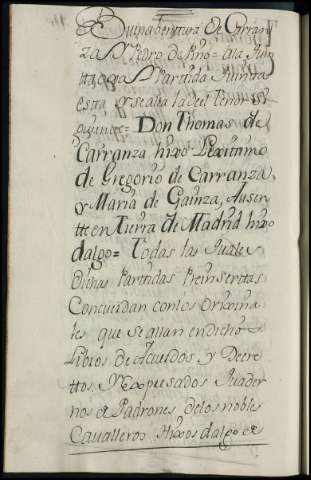 Buenabentura de Carran
za D.n Pedro de
tta, cuya Partida Numira
esta, y se alla la del tenor si
guiente= Don Thomas de
Carranza hixo Lexitimo
de Gregorio de Carranza,
y Maria de Gainza, Ausen
tte en Tierra de Madrid hixo
dalgo= Todas las Quales
dichas Partidas Preinsertas
Concuerdan con los Orixina
les que se allan en dichos
Libros de Acuerdos y Decre
ttos, y Expresados Quader
nos o Padrones de los nobles
Cavalleros Hixos dalgo